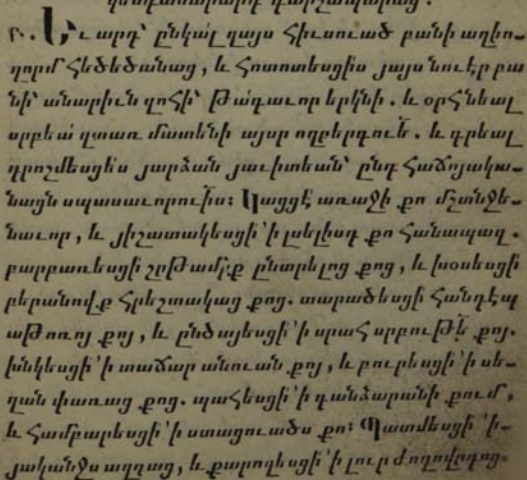 բ. Եւ արդ՝ ընկա՛լ զայս հիւսուած բանի աղիո-
ղորմ հեծեծանաց, և հոտոտեսցիս յայս նուէր բա
նի՝ անարիւն զոհի՝ Թագաւոր երկնի. և օրհնեալ
սրբեա՛ զտառ մատենի այսր ողբերգուե՛. և գրեալ
դրոշմեսցես յարձան յաւիտեան՝ ընդ հաճոյակա-
նացն սպասաւորուիս։ Կացցէ առաջի քո մշտնջե-
նաւոր, և յիշատակեսցի ՚ի լսելիսդ քո հանապազ.
բարբառեսցի շրթամբք ընտրելոց քոց, և խօսեսցի
բերանովք հրեշտակաց քոց. տարածեսցի հանդէպ
աթոռոյ քոյ, և ընծայեսցի ՚ի սրահ սրբուե քոյ.
խնկեսցի ՚ի տաճար անուան քոյ, և բուրեսցի ՚ի սե-
ղան փառաց քոց. պահեսցի ՚ի գանձարանի քում,
և համբարեսցի ՚ի ստացուածս քո։ Պատմեսցի ՚ի-
յականջս ազգաց, և քարոզեսցի ՚ի լուր ժողովրդոց.